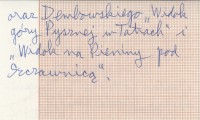 oraz Dembowskiego „Widok
góry Pysznej w Tatrach" i
„Widok na Pieniny pod
Szczawnicą".